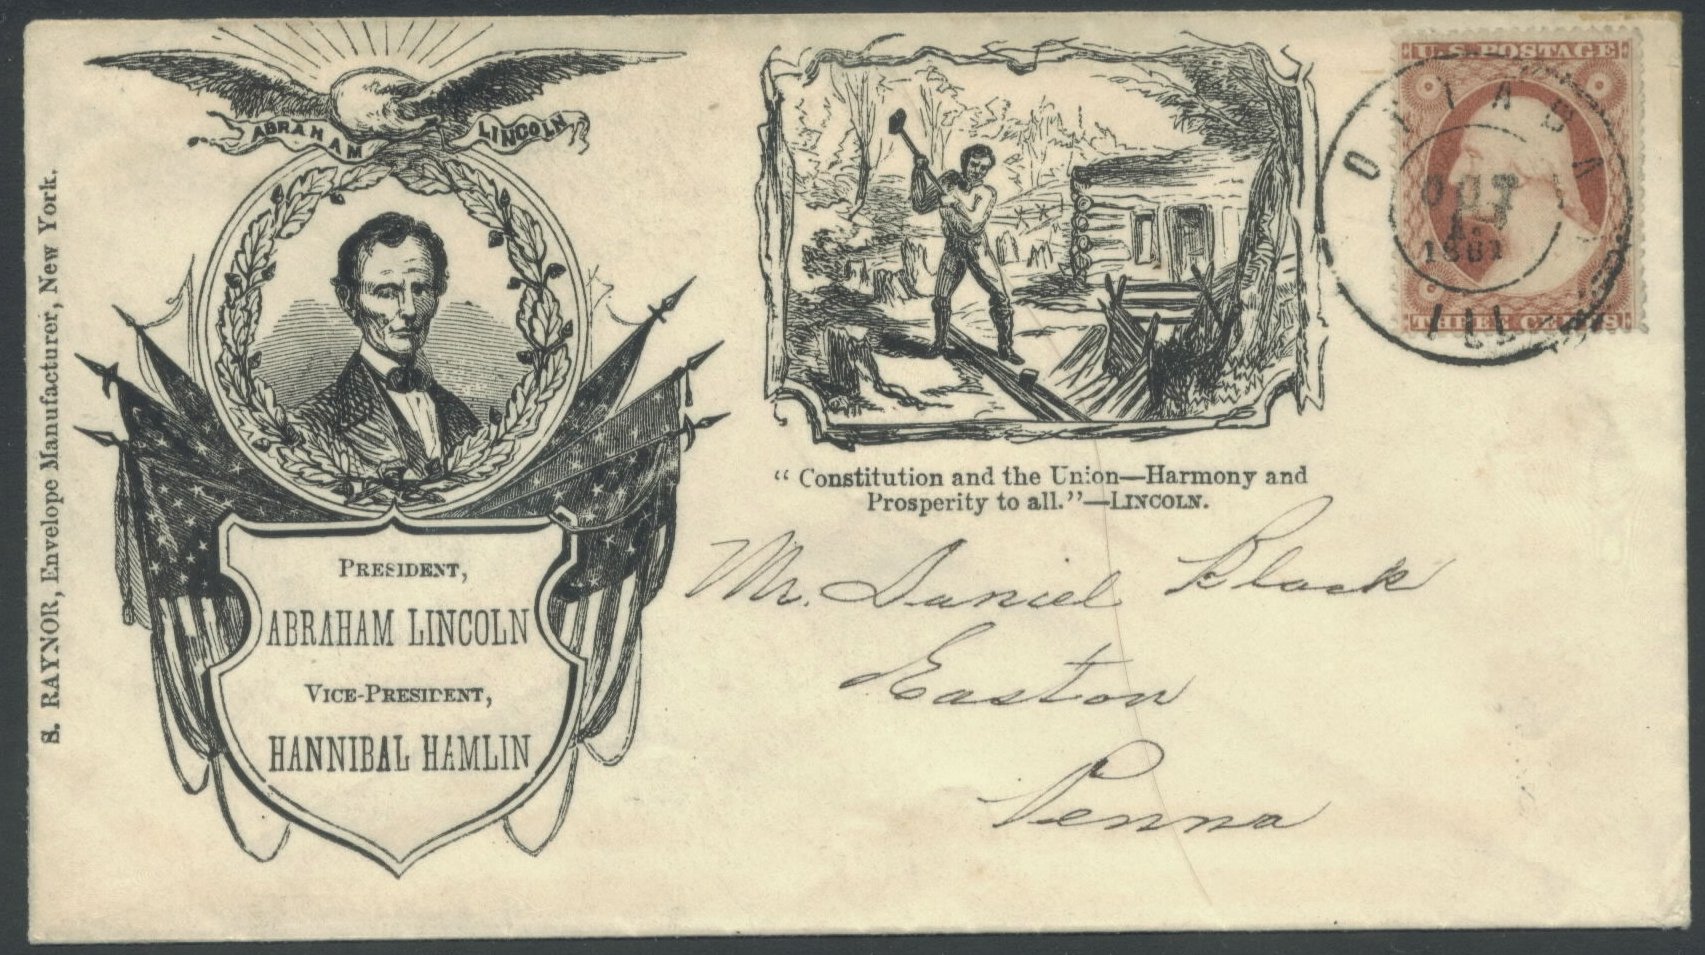 S. RAYNOR, Envelope Manufacturer, New York.
ABRAHAM LINCOLN
PRESIDENT,
ABRAHAM LINCOLN
VICE-PRESIDENT,
HANNIBAL HAMLIN
“Constitution and the Union—Harmony and
Prosperity to all.”—LINCOLN.
U.S. POSTAGE
THREE CENTS
OCT
1861
ILL
Mr. Daniel Black
Easton
Penna